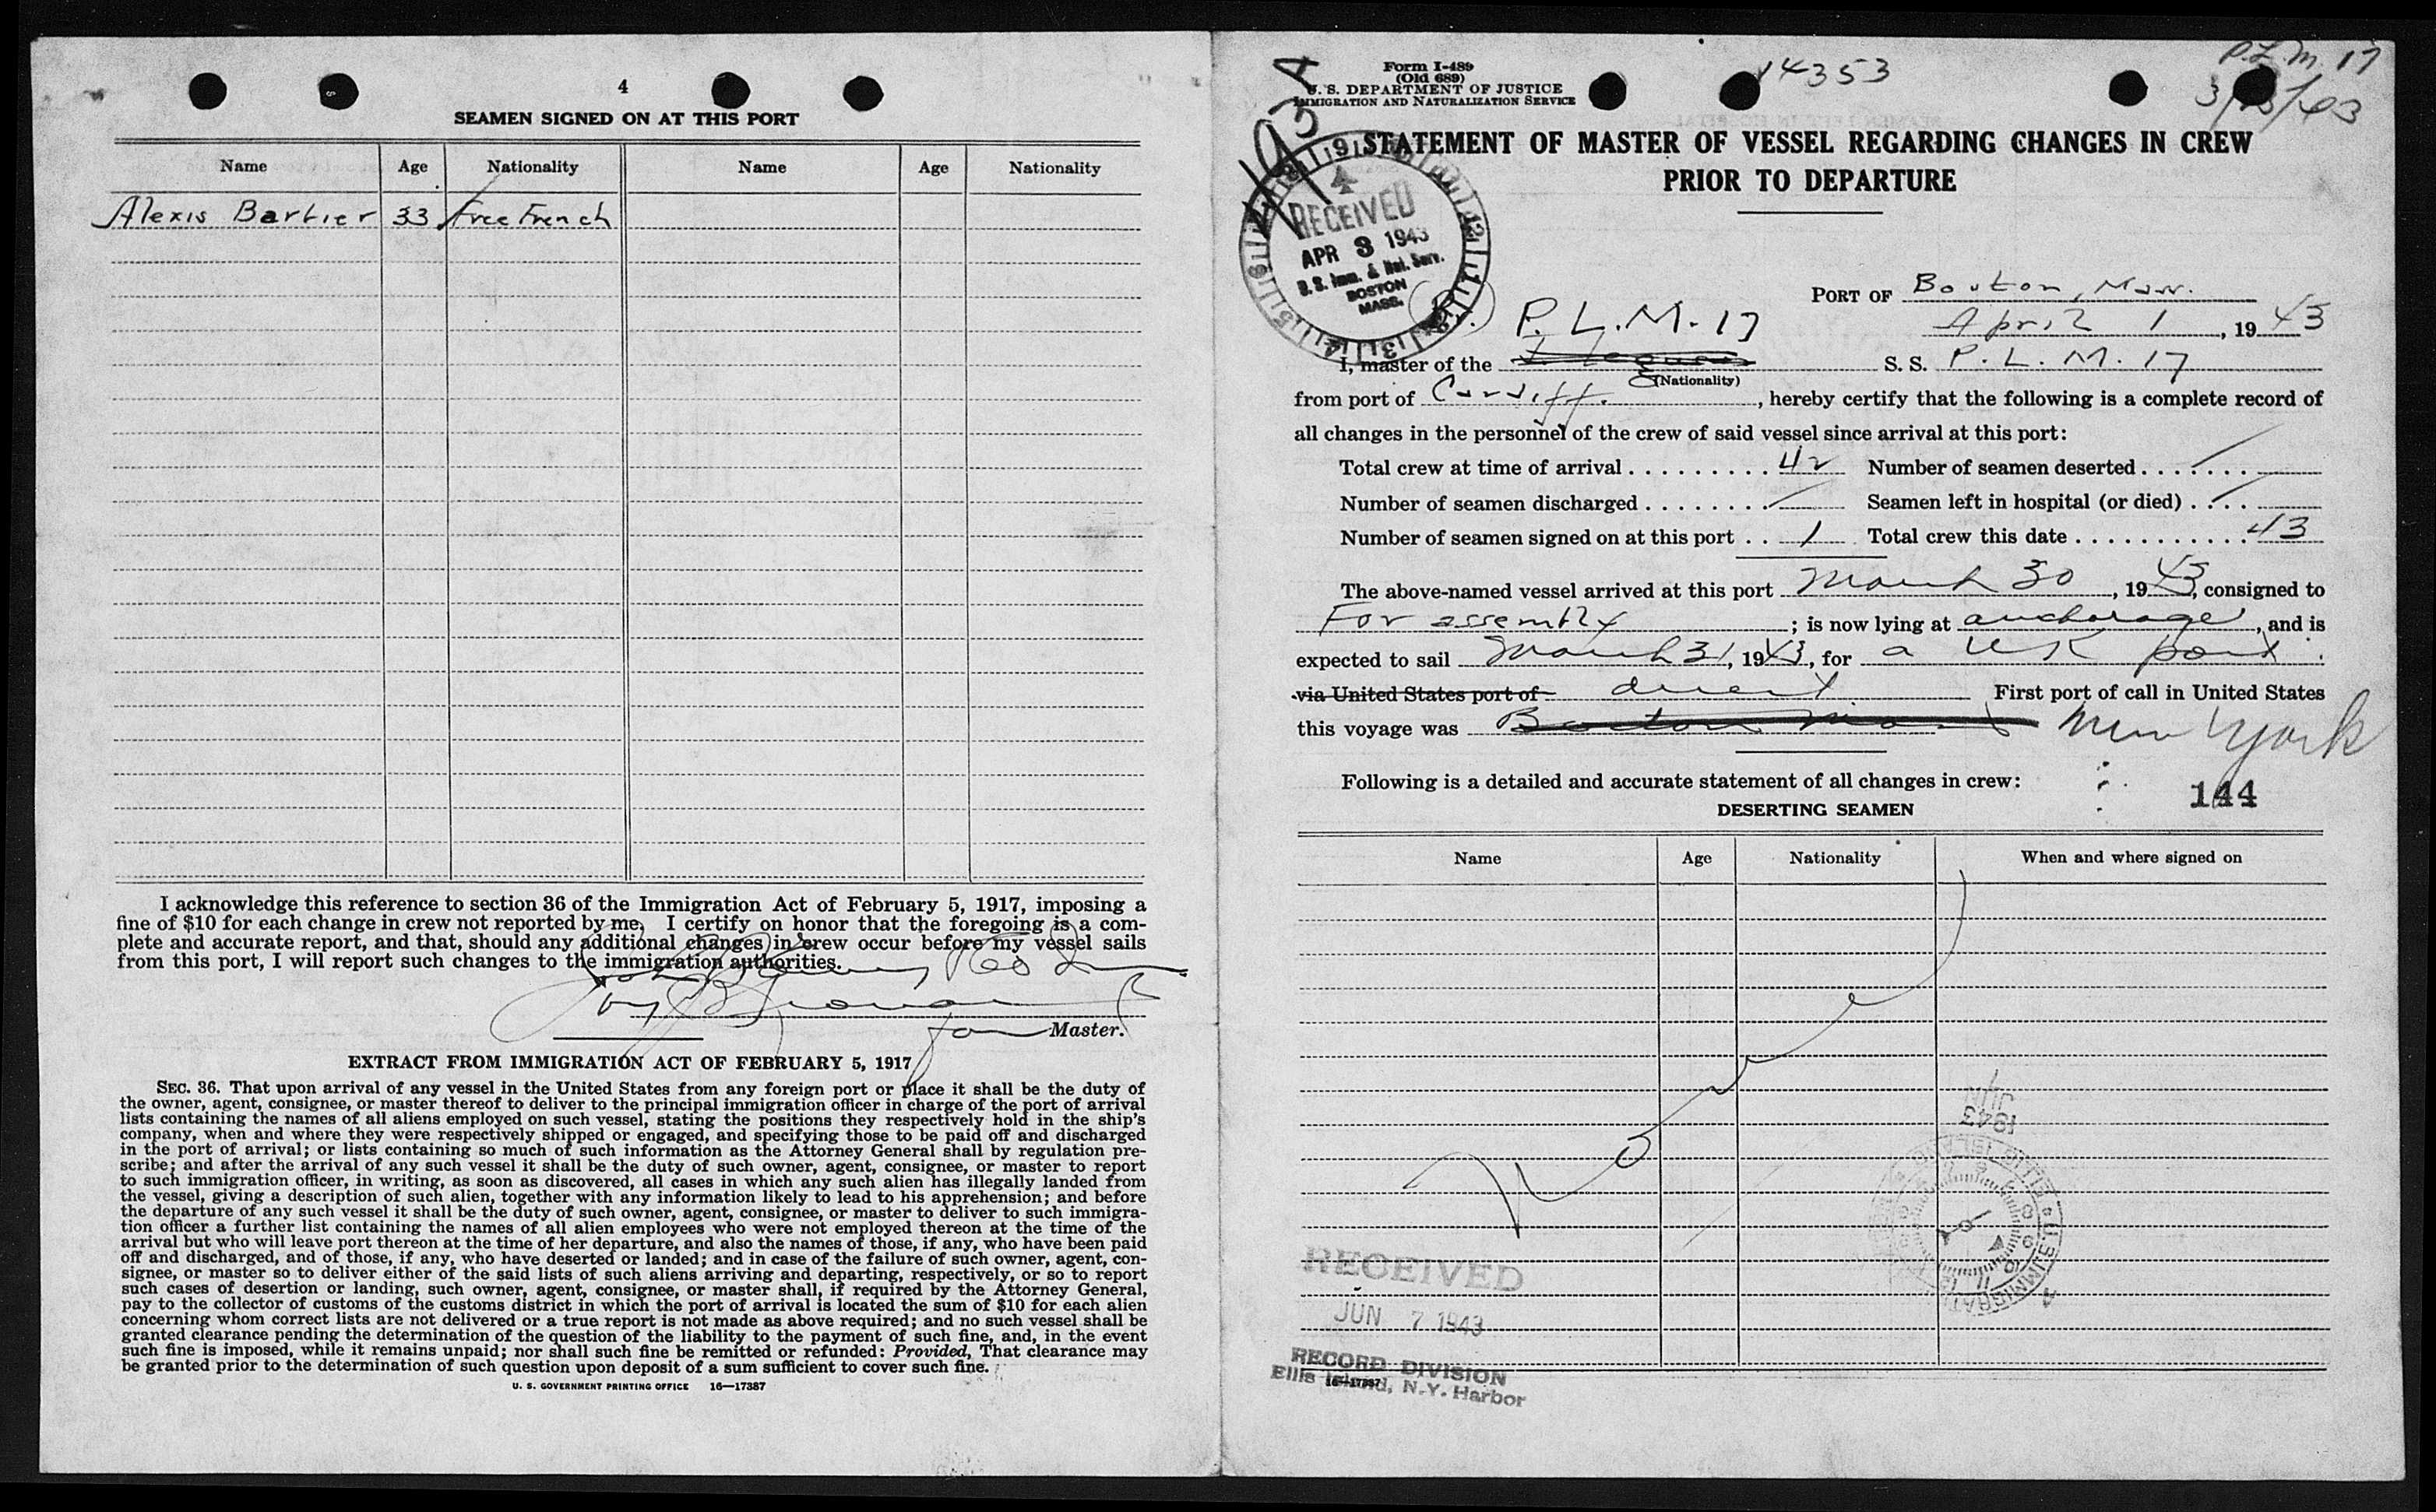 4
SEAMEN SIGNED ON AT THIS PORT
Name Age Nationality Name Age Nationality
Alexis Barbier 33 Free French
I acknowledge this reference to section 36 of the Immigration Act of February 5, 1917, imposing a
fine of $10 for each change in crew not reported by me. I certify on honor that the foregoing is a com-
plete and accurate report, and that, should any additional changes in crew occur before my vessel sails
from this port, I will report such changes to the immigration authorities.
for Master.
EXTRACT FROM IMMIGRATION ACT OF FEBRUARY 5, 1917
SEC. 36. That upon arrival of any vessel in the United States from any foreign port or place it shall be the duty of
the owner, agent, consignee, or master thereof to deliver to the principal immigration officer in charge of the port of arrival
lists containing the names of all aliens employed on such vessel, stating the positions they respectively hold in the ship's
company, when and where they were respectively shipped or engaged, and specifying those to be paid off and discharged
in the port of arrival; or lists containing so much of such information as the Attorney General shall by regulation pre-
scribe; and after the arrival of any such vessel it shall be the duty of such owner, agent, consignee, or master to report
to such immigration officer, in writing, as soon as discovered, all cases in which any such alien has illegally landed from
the vessel, giving a description of such alien, together with any information likely to lead to his apprehension; and before
the departure of any such vessel it shall be the duty of such owner, agent, consignee, or master to deliver to such immigra-
tion officer a further list containing the names of all alien employees who were not employed thereon at the time of the
arrival but who will leave port thereon at the time of her departure, and also the names of those, if any, who have been paid
off and discharged, and of those, if any, who have deserted or landed; and in case of the failure of such owner, agent, con-
signee, or master so to deliver either of the said lists of such aliens arriving and departing, respectively, or so to report
such cases of desertion or landing, such owner, agent, consignee, or master shall, if required by the Attorney General,
pay to the collector of customs of the customs district in which the port of arrival is located the sum of $10 for each alien
concerning whom correct lists are not delivered or a true report is not made as above required; and no such vessel shall be
granted clearance pending the determination of the question of the liability to the payment of such fine, and, in the event
such fine is imposed, while it remains unpaid; nor shall such fine be remitted or refunded: Provided, That clearance may
be granted prior to the determination of such question upon deposit of a sum sufficient to cover such fine.
U. S. GOVERNMENT PRINTING OFFICE 16—17387
Form I-489
(Old 689)
U. S. DEPARTMENT OF JUSTICE
IMMIGRATION AND NATURALIZATION SERVICE
14353
P.L.M. 17
STATEMENT OF MASTER OF VESSEL REGARDING CHANGES IN CREW
PRIOR TO DEPARTURE
RECEIVED
APR 3 1943
U. S. Imm. & Nat. Serv.
BOSTON
MASS.
PORT OF Boston, Mass.
April 1, 1943
P.L.M. 17
I, master of the S. S. P. L. M. 17
(Nationality)
from port of Cardiff., hereby certify that the following is a complete record of
all changes in the personnel of the crew of said vessel since arrival at this port:
Total crew at time of arrival . . . . . . . . . 42 Number of seamen deserted . . . . . . .
Number of seamen discharged . . . . . . . . Seamen left in hospital (or died) . . . .
Number of seamen signed on at this port . . 1 Total crew this date . . . . . . . . . . . 43
The above-named vessel arrived at this port March 30, 1943, consigned to
For assembly; is now lying at anchorage, and is
expected to sail March 31, 1943, for a UK port.
via United States port of direct First port of call in United States
this voyage was New York
Following is a detailed and accurate statement of all changes in crew:
144
DESERTING SEAMEN
Name Age Nationality When and where signed on
None
JUN
1943
RECEIVED
JUN 7 1943
RECORD DIVISION
Ellis Island, N.Y. Harbor
16—17387